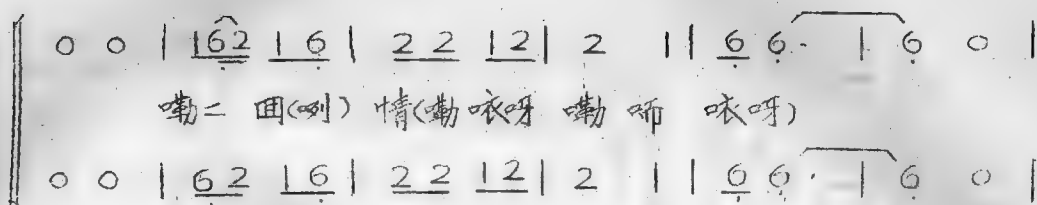 0 0 | 162 16 | 22 12 | 2 1 | 66· 1 | 6 0 |
嘞二 囬(咧) 情(嘞 咴呀 嘞 嗬 咴呀)
0 0 | 62 16 | 22 12 | 2 1 | 66· 1 | 6 0 |